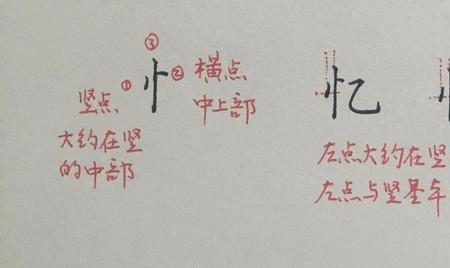 ③
竖点 ① 忄 ② 横点
大约在竖 中上部
的中部
忆
左点大约在竖
左点与竖基本